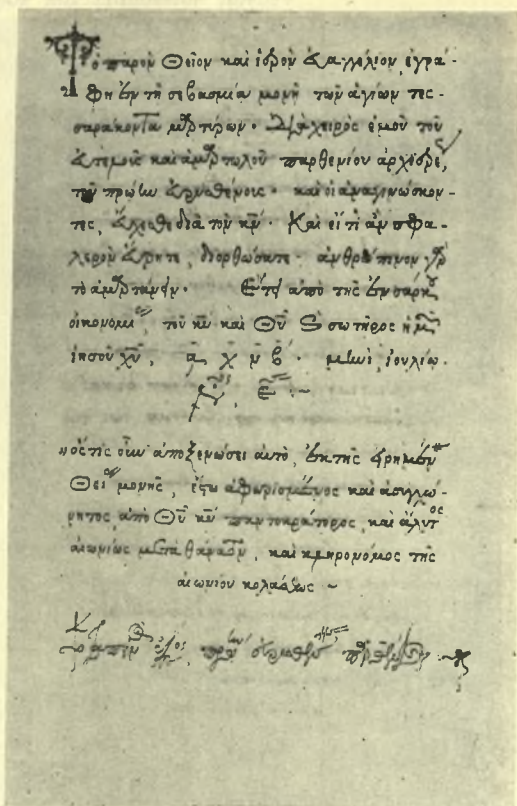 Το παρὸν θεῖον καὶ ἱερὸν εὐαγγέλιον, ἐγρά-
φη ἐν τῇ σεβασμίᾳ μονῇ τῶν ἁγίων τεσ-
σαράκοντα μαρτύρων· διὰ χειρὸς ἐμοῦ τοῦ
εὐτελοῦς καὶ ἁμαρτωλοῦ παρθενίου ἀρχιερέως
τοῦ πρώην· καὶ οἱ ἀναγινώσκον-
τες, εὔχεσθε διὰ τὸν κν̅· Καὶ εἴ τι ἂν σφα-
λερὸν εὕρητε, διορθώσατε· ἀνθρώπινον γὰρ
τὸ ἁμαρτάνειν· Ἔτει ἀπὸ τῆς ἐνσάρκου
οἰκονομίας, τοῦ κυ̅ καὶ θυ̅ σωτῆρος ἡμῶν
ἰησοῦ χυ̅, α χ ν β· μηνὶ, ἰουλίῳ.
ε :~
τις οὖν ἀποξενώσει αὐτὸ, ἐκ τῆς εἰρημένης
θείας μονῆς, ἔστω ἀφωρισμένος καὶ ἀσυγχώ-
ρητος ἀπὸ θυ̅ κυ̅ παντοκράτορος, καὶ ἄλυτος
αἰωνίως μετὰ θάνατον, καὶ κληρονόμος τῆς
αἰωνίου κολάσεως ~